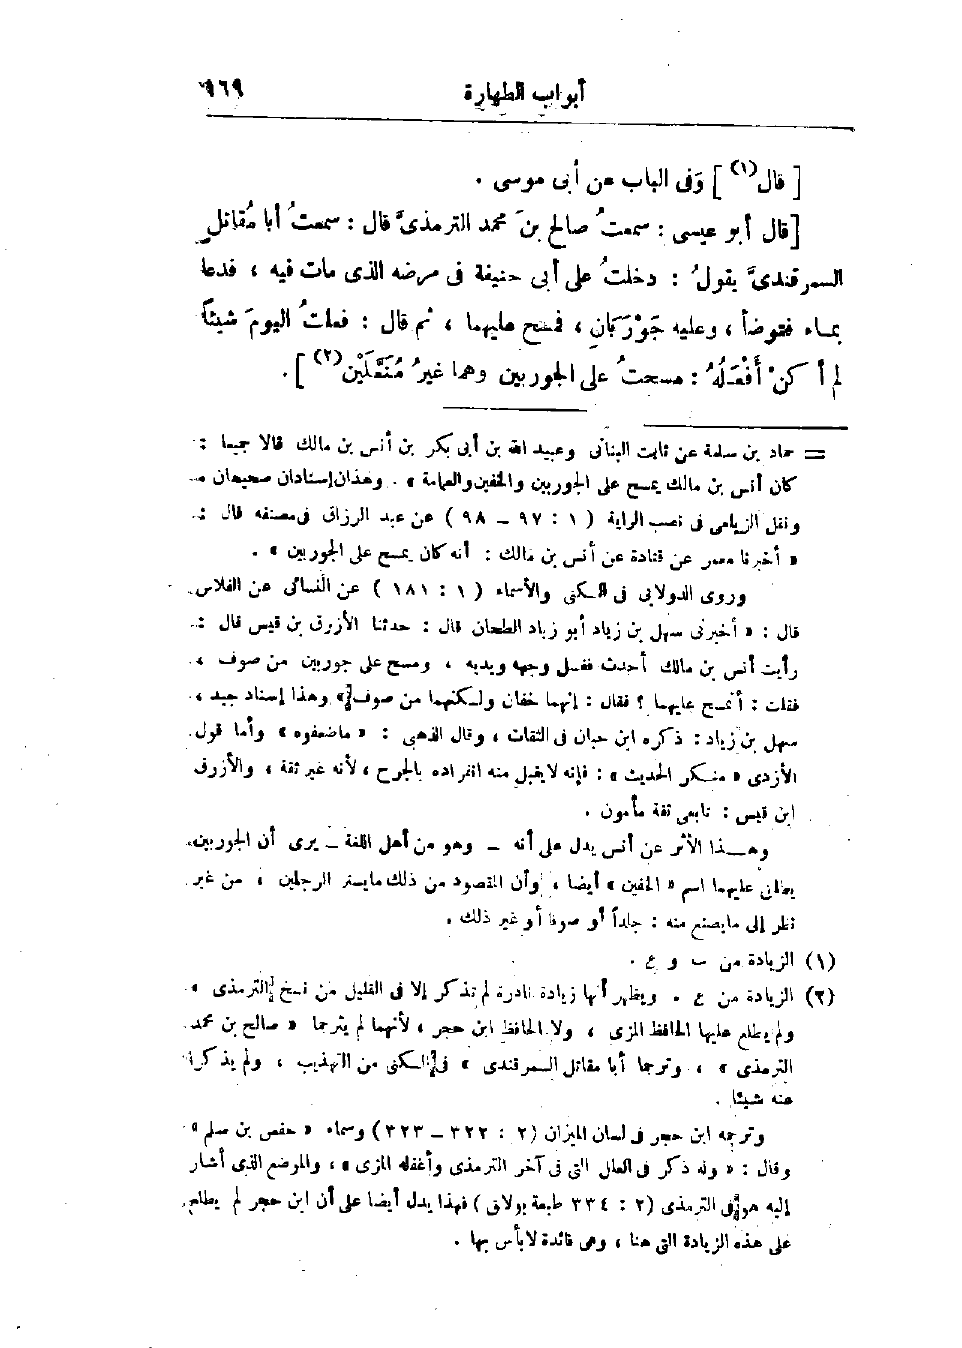 أبواب الطهارة ١٦٩
[ قال (١) ] وَفى الباب عن أبى موسى .
[ قال أبو عيسى : سمعتُ صالح بنَ محمد الترمذىَّ قال : سمعتُ أبا مُقاتلٍ
السمرقندىَّ يقولُ : دخلتُ على أبى حنيفة فى مرضه الذى مات فيه ، فدعا
بمـاء فتوضأ ، وعليه جَوْرَبَانِ ، فمسح عليهما ، ثم قال : فعلتُ اليومَ شيئاً
لم أكنْ أَفْعَلُهُ : مسحتُ على الجوربين وهما غيرُ مُنَعَّلَيْن (٢) ] .
= حماد بن سلمة عن ثابت البنانى وعبيد الله بن أبى بكر بن أنس بن مالك قالا جميعا :
كان أنس بن مالك يمسح على الجوربين والخفين والعمامة » . وهذان إسنادان صحيحان .
ونقل الزيلعى فى نصب الراية ( ١ : ٩٧ ــ ٩٨ ) عن عبد الرزاق فى مصنفه قال :
« أخبرنا معمر عن قتادة عن أنس بن مالك : أنه كان يمسح على الجوربين » .
وروى الدولابى فى الـكنى والأسماء ( ١ : ١٨١ ) عن النسائى عن الفلاس
قال : « أخبرنى سهل بن زياد أبو زياد الطحان قال : حدثنا الأزرق بن قيس قال :
رأيت أنس بن مالك أحدث فغسل وجهه ويديه ، ومسح على جوربين من صوف ،
فقلت : أتمسح عليهما ؟ فقال : إنهما خفان ولـكنهما من صوف » وهذا إسناد جيد ،
سهل بن زياد : ذكره ابن حبان فى الثقات ، وقال الذهبى : « ماضعفوه » وأما قول
الأزدى « منـكر الحديث » : فإنه لايقبل منه انفراده بالجرح ، لأنه غير ثقة ، والأزرق
ابن قيس : تابعى ثقة مأمون .
وهـذا الأثر عن أنس يدل على أنه ــ وهو من أهل اللغة ــ يرى أن الجوربين
يطلق عليهما اسم « الخفين » أيضا ، وأن المقصود من ذلك مايستر الرجلين ، من غير
نظر إلى مايصنع منه : جلداً أو صوفا أو غير ذلك .
(١) الزيادة من ب و ع .
(٢) الزيادة من ع . ويظهر أنها زيادة نادرة لم تذكر إلا فى القليل من نسخ الترمذى ،
ولم يطلع عليها الحافظ المزى ، ولا الحافظ ابن حجر ، لأنهما لم يترجما « صالح بن محمد
الترمذى » ، وترجما أبا مقاتل السمرقندى » فى الـكنى من التهذيب ، ولم يذكرا
عنه شيئا .
وترجمه ابن حجر فى لسان الميزان (٢ : ٣٢٢ ــ ٣٢٣) وسماه « حفص بن سلم »
وقال : « وله ذكر فى العلل التى فى آخر الترمذى وأغفله المزى » ، والموضع الذى أشار
إليه هو فى الترمذى (٢ : ٣٣٤ طبعة بولاق ) فهذا يدل أيضا على أن ابن حجر لم يطلع
على هذه الزيادة التى هنا ، وهى فائدة لابأس بها .